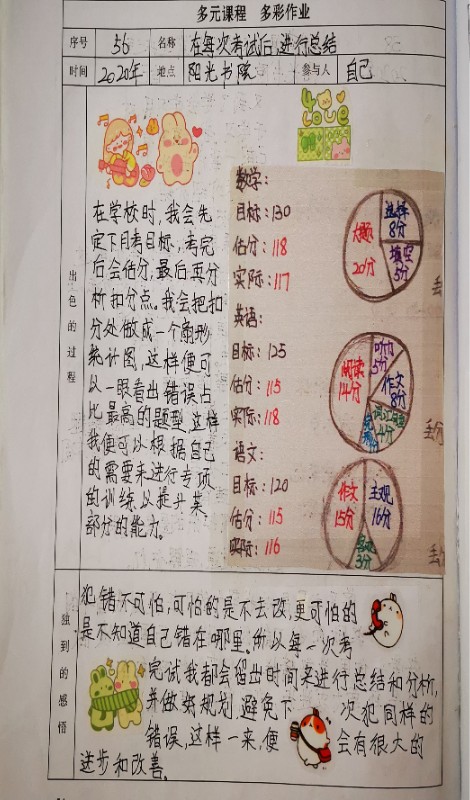 多元课程 多彩作业
序号 56 名称 在每次考试后,进行总结
时间 2020年 地点 阳光书院 参与人 自己
出色的过程
love
在学校时,我会先
定下月考目标,考完
后会估分,最后再分
析扣分点。我会把扣
分处做成一个扇形
统计图,这样便可
以一眼看出错误占
比最高的题型,这样
我便可以根据自己
的需要来进行专项
的训练,以提升某
部分的能力。
数学:
目标:130
估分:118
实际:117
大题
20分
选择
8分
填空
5分
英语:
目标:125
估分:115
实际:118
阅读
14分
听力
5分
作文
8分
语文:
目标:120
估分:115
实际:116
作文
15分
主观
16分
3分
独到的感悟
犯错不可怕,可怕的是不去改,更可怕的
是不知道自己错在哪里。所以每一次考
完试我都会留出时间来进行总结和分析,
并做好规划,避免下次犯同样的
错误,这样一来,便会有很大的
进步和改善。